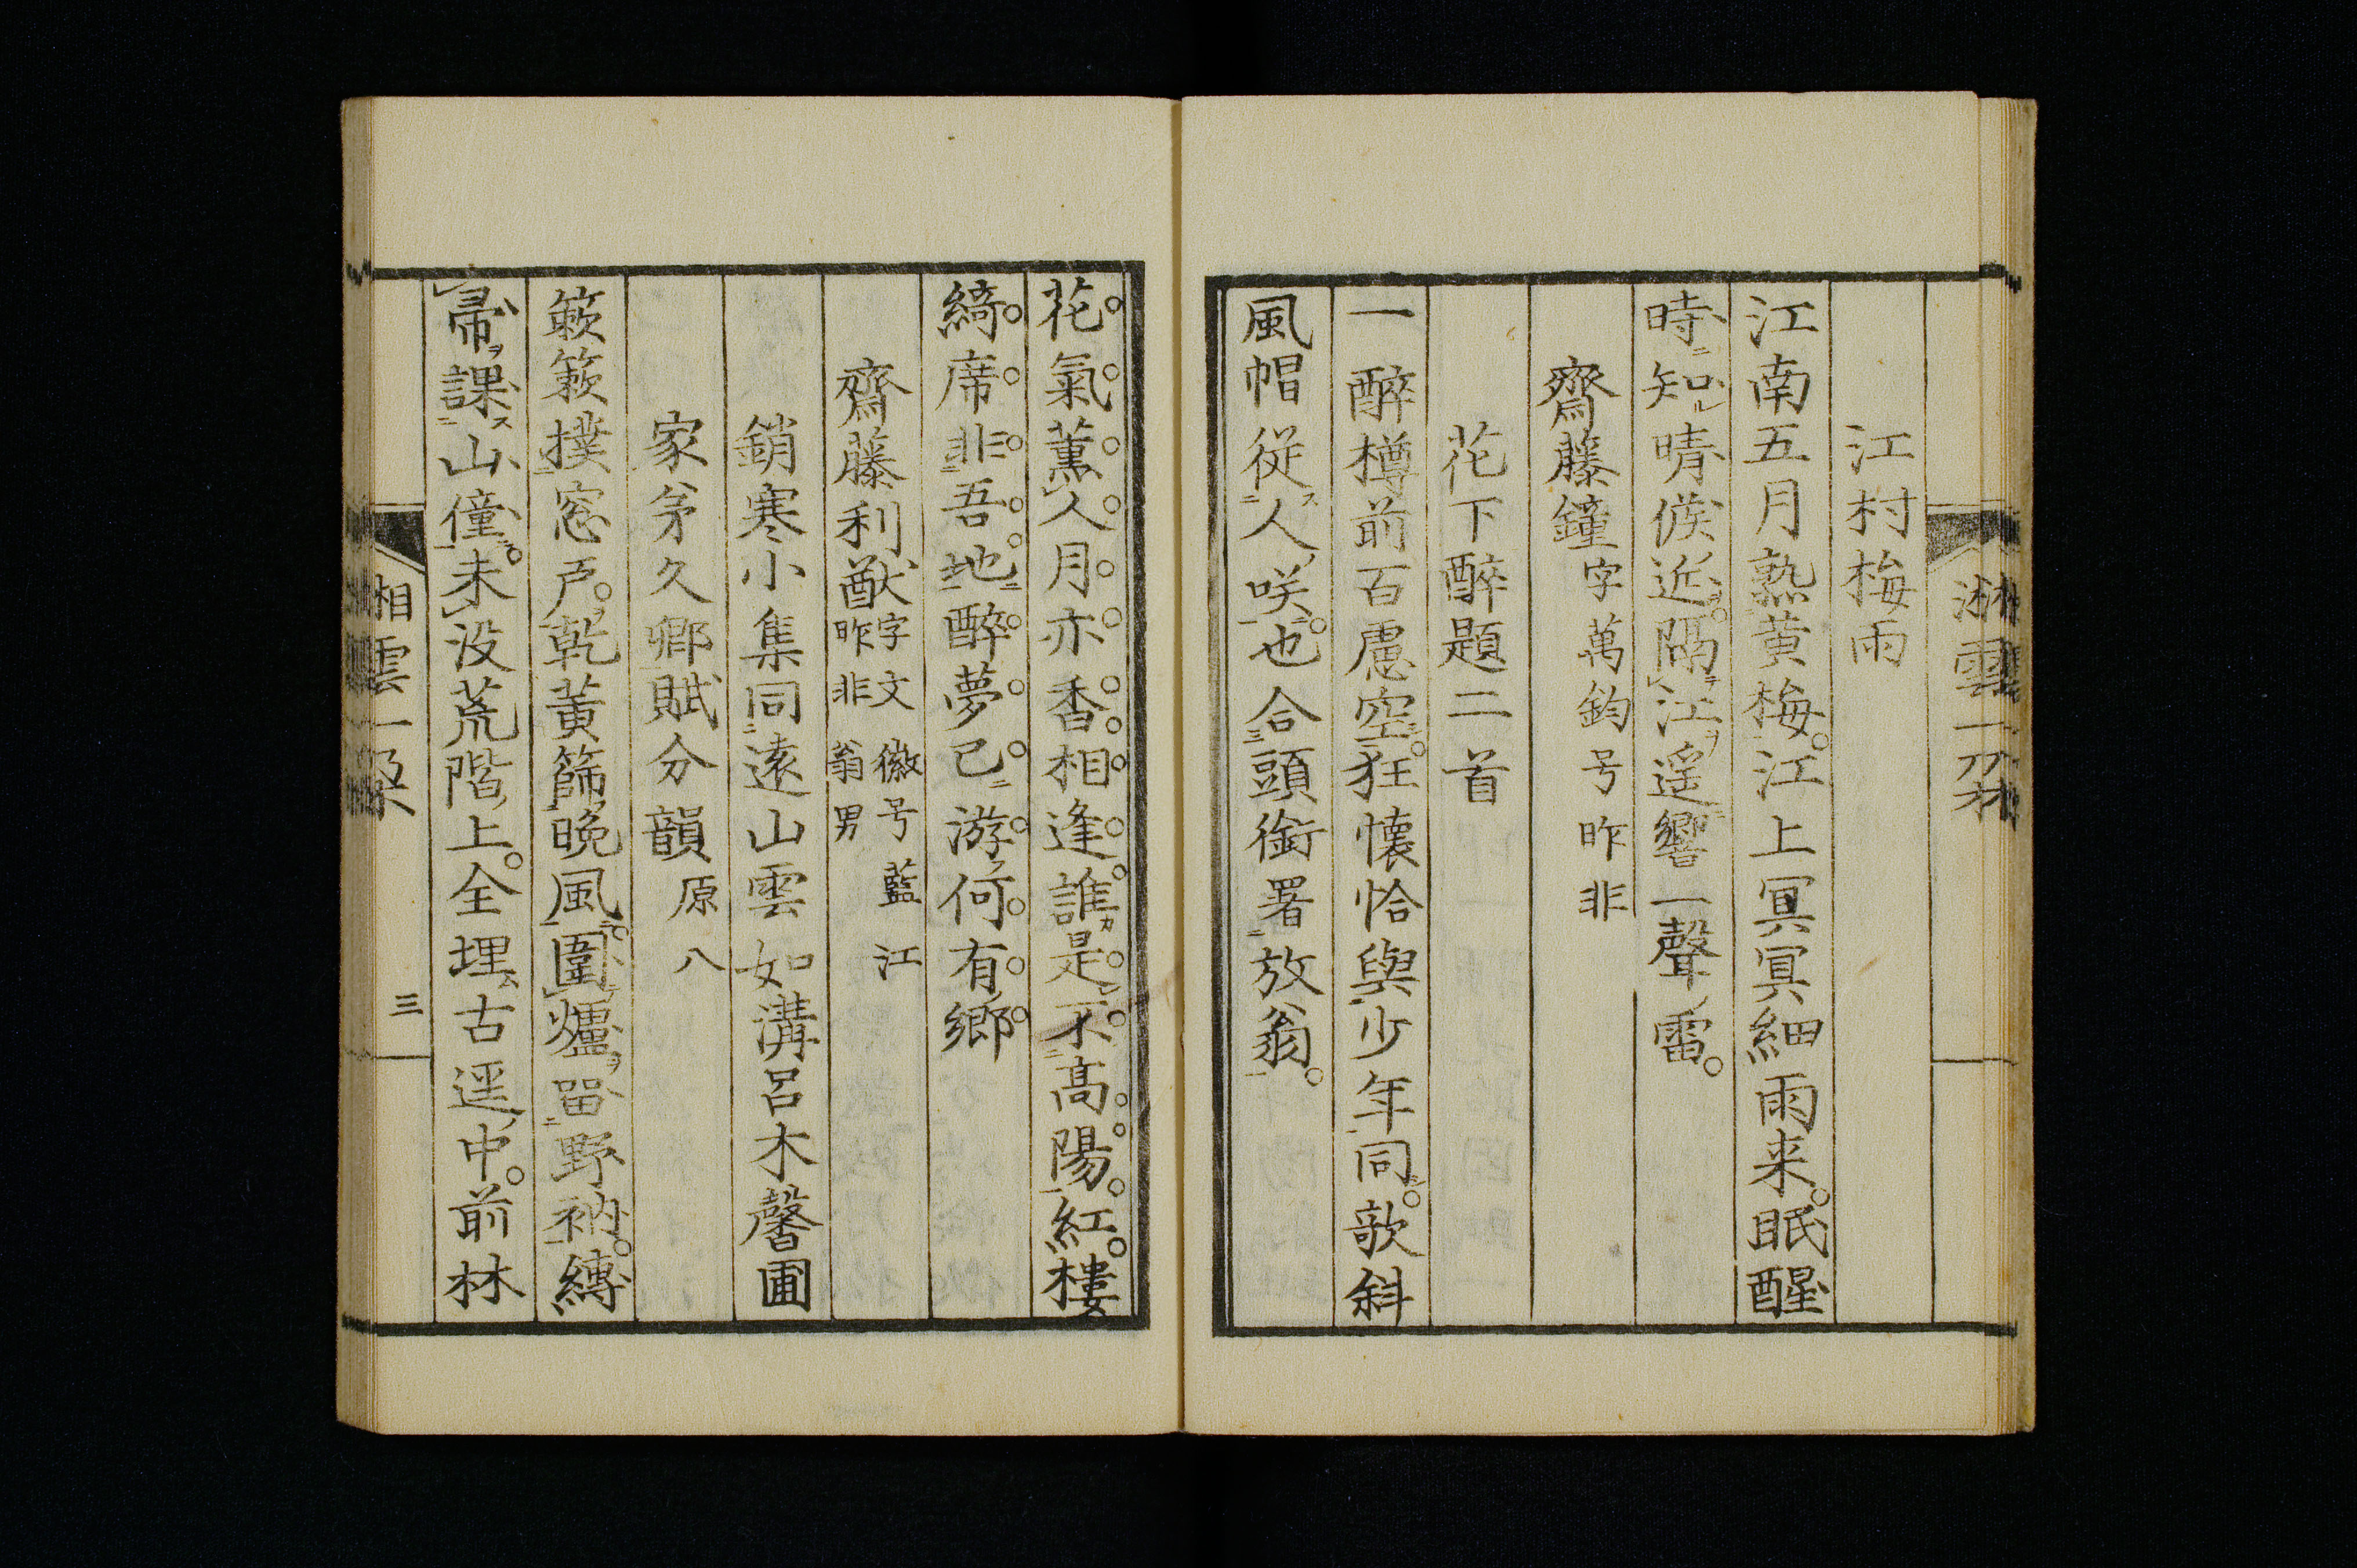 江村梅雨
江南五月熟黄梅。江上冥冥細雨来。眠醒
時知晴候近。隔江遥響一聲雷。
齋藤鐘字萬鈞号昨非
花下醉題二首
一醉樽前百慮空。狂懐恰與少年同。歌斜
風帽従人咲。也合頭銜署放翁。
花氣薫人月亦香。相逢誰是不高陽。紅樓
綺席非吾地。醉夢已游何有郷
齋藤利猷字文徽号藍江
昨非翁男
銷寒小集同遠山雲如溝呂木馨圃
家茅久郷賦分韻原八
簌簌撲窓戸。乾黄篩晩風。圍爐留野衲。縳
帚課山僮。未没荒階上。全埋古逕中。前林
湘雲一朶
三